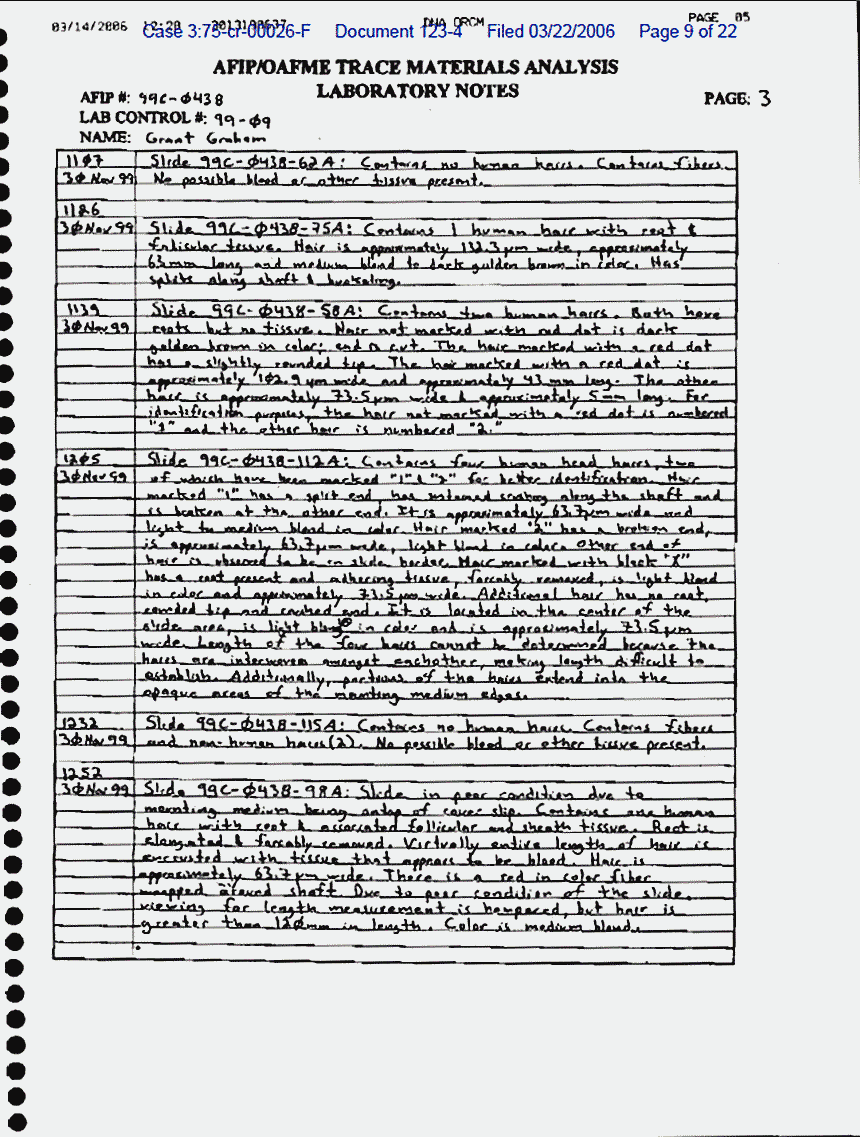 03/14/2006 12:20 3013190637 DNA ORCM PAGE 05
Case 3:75-cr-00026-F Document 123-4 Filed 03/22/2006 Page 9 of 22
AFIP/OAFME TRACE MATERIALS ANALYSIS
LABORATORY NOTES
AFIP #: 99C-Ø438 PAGE: 3
LAB CONTROL #: 99-Ø9
NAME: Grant Graham
11Ø7 Slide 99C-Ø438-62A: Contains no human hairs. Contains fibers.
3Ø Nov 99 No possible blood or other tissue present.
1126
3Ø Nov 99 Slide 99C-Ø438-75A: Contains 1 human hair with root &
folicular tissue. Hair is approximately 132.3 µm wide, approximately
63mm long and medium blond to dark golden brown in color. Has
splits along shaft & buckeling.
1139 Slide 99C-Ø438-58A: Contains two human hairs. Both have
3Ø Nov 99 roots but no tissue. Hair not marked with red dot is dark
golden brown in color; end is cut. The hair marked with a red dot
has a slightly rounded tip. The hair marked with a red dot is
approximately 1Ø2.9 µm wide and approximately 43 mm long. The other
hair is approximately 73.5 µm wide & approximately 5mm long. For
identification purposes, the hair not marked with a red dot is numbered
"1" and the other hair is numbered "2."
12Ø5 Slide 99C-Ø438-112A: Contains four human head hairs, two
3Ø Nov 99 of which have been marked "1" & "2" for better identification. Hair
marked "1" has a split end, has crushing along the shaft and
is broken at the other end. It is approximately 63.7µm wide and
light to medium blond in color. Hair marked "2" has a broken end,
is approximately 63.7µm wide, light blond in color. Other end of
hair is observed to be in slide border. Hair marked with black "X"
has a root present and adhering tissue, forcably removed, is light blond
in color and approximately 73.5µm wide. Additional hair has no root,
rounded tip and crushed end. It is located in the center of the
slide area, is light blond in color and is approximately 73.5µm
wide. Length of the four hairs cannot be determined because the
hairs are interwoven amongst eachother, making length difficult to
establish. Additionally, portions of the hairs extend into the
opaque areas of the mounting medium edges.
1232 Slide 99C-Ø438-115A: Contains no human hairs. Contains fibers
3Ø Nov 99 and non-human hairs (2). No possible blood or other tissue present.
1252
3Ø Nov 99 Slide 99C-Ø438-98A: Slide in poor condition due to
mounting medium being ontop of cover slip. Contains one human
hair with root & associated follicular and sheath tissue. Root is
elongated & forcably removed. Virtually entire length of hair is
encrusted with tissue that appears to be blood. Hair is
approximately 63.7 µm wide. There is a red in color fiber
wrapped around shaft. Due to poor condition of the slide,
viewing for length measurement is hampered, but hair is
greater than 12Ømm in length. Color is medium blond.